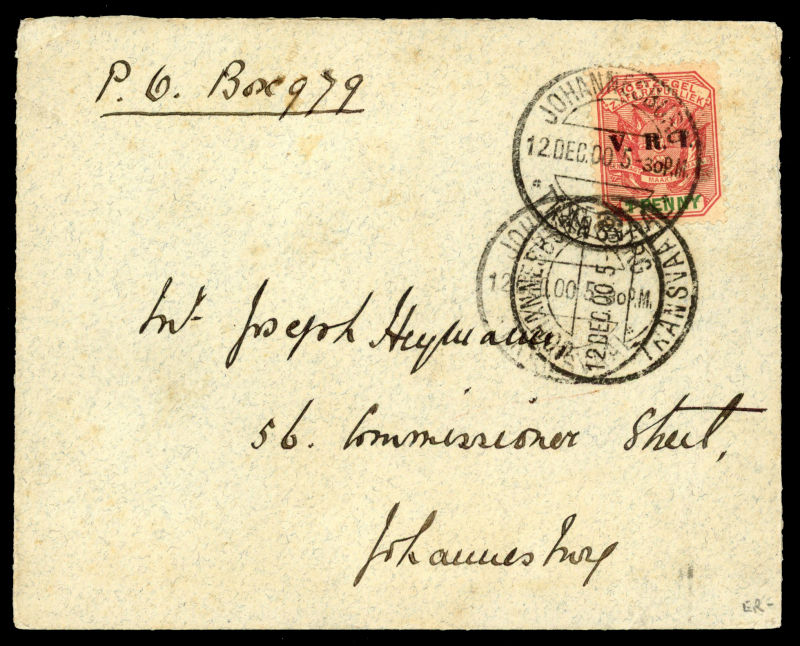 P. O. Box 979
POSTZEGEL
Z. AFR. REPUBLIEK
V. R. I.
PENNY
JOHANNESBURG
12.DEC.00 5-30P.M.
TRANSVAAL
JOHANNESBURG
12.DEC.00 5-
TRANSVAAL
.00 5-30P.M.
Mr. Joseph Heymann
56. Commissioner Street,
Johannesburg
ER-